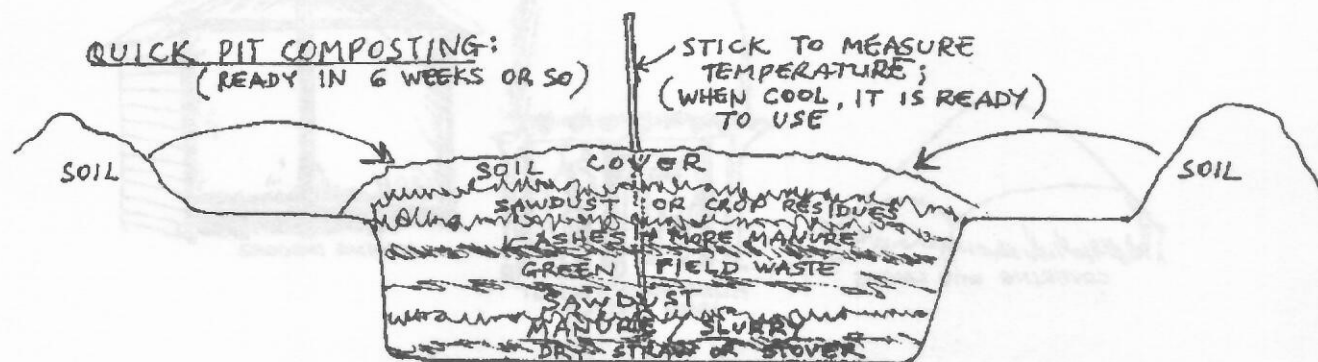 QUICK PIT COMPOSTING:
(READY IN 6 WEEKS OR SO)
STICK TO MEASURE
TEMPERATURE;
(WHEN COOL, IT IS READY)
TO USE
SOIL
SOIL COVER
SOIL
SAWDUST OR CROP RESIDUES
ASHES + MORE MANURE
GREEN FIELD WASTE
SAWDUST
MANURE / SLURRY
DRY STRAW OR STOVER
COVERING WITH